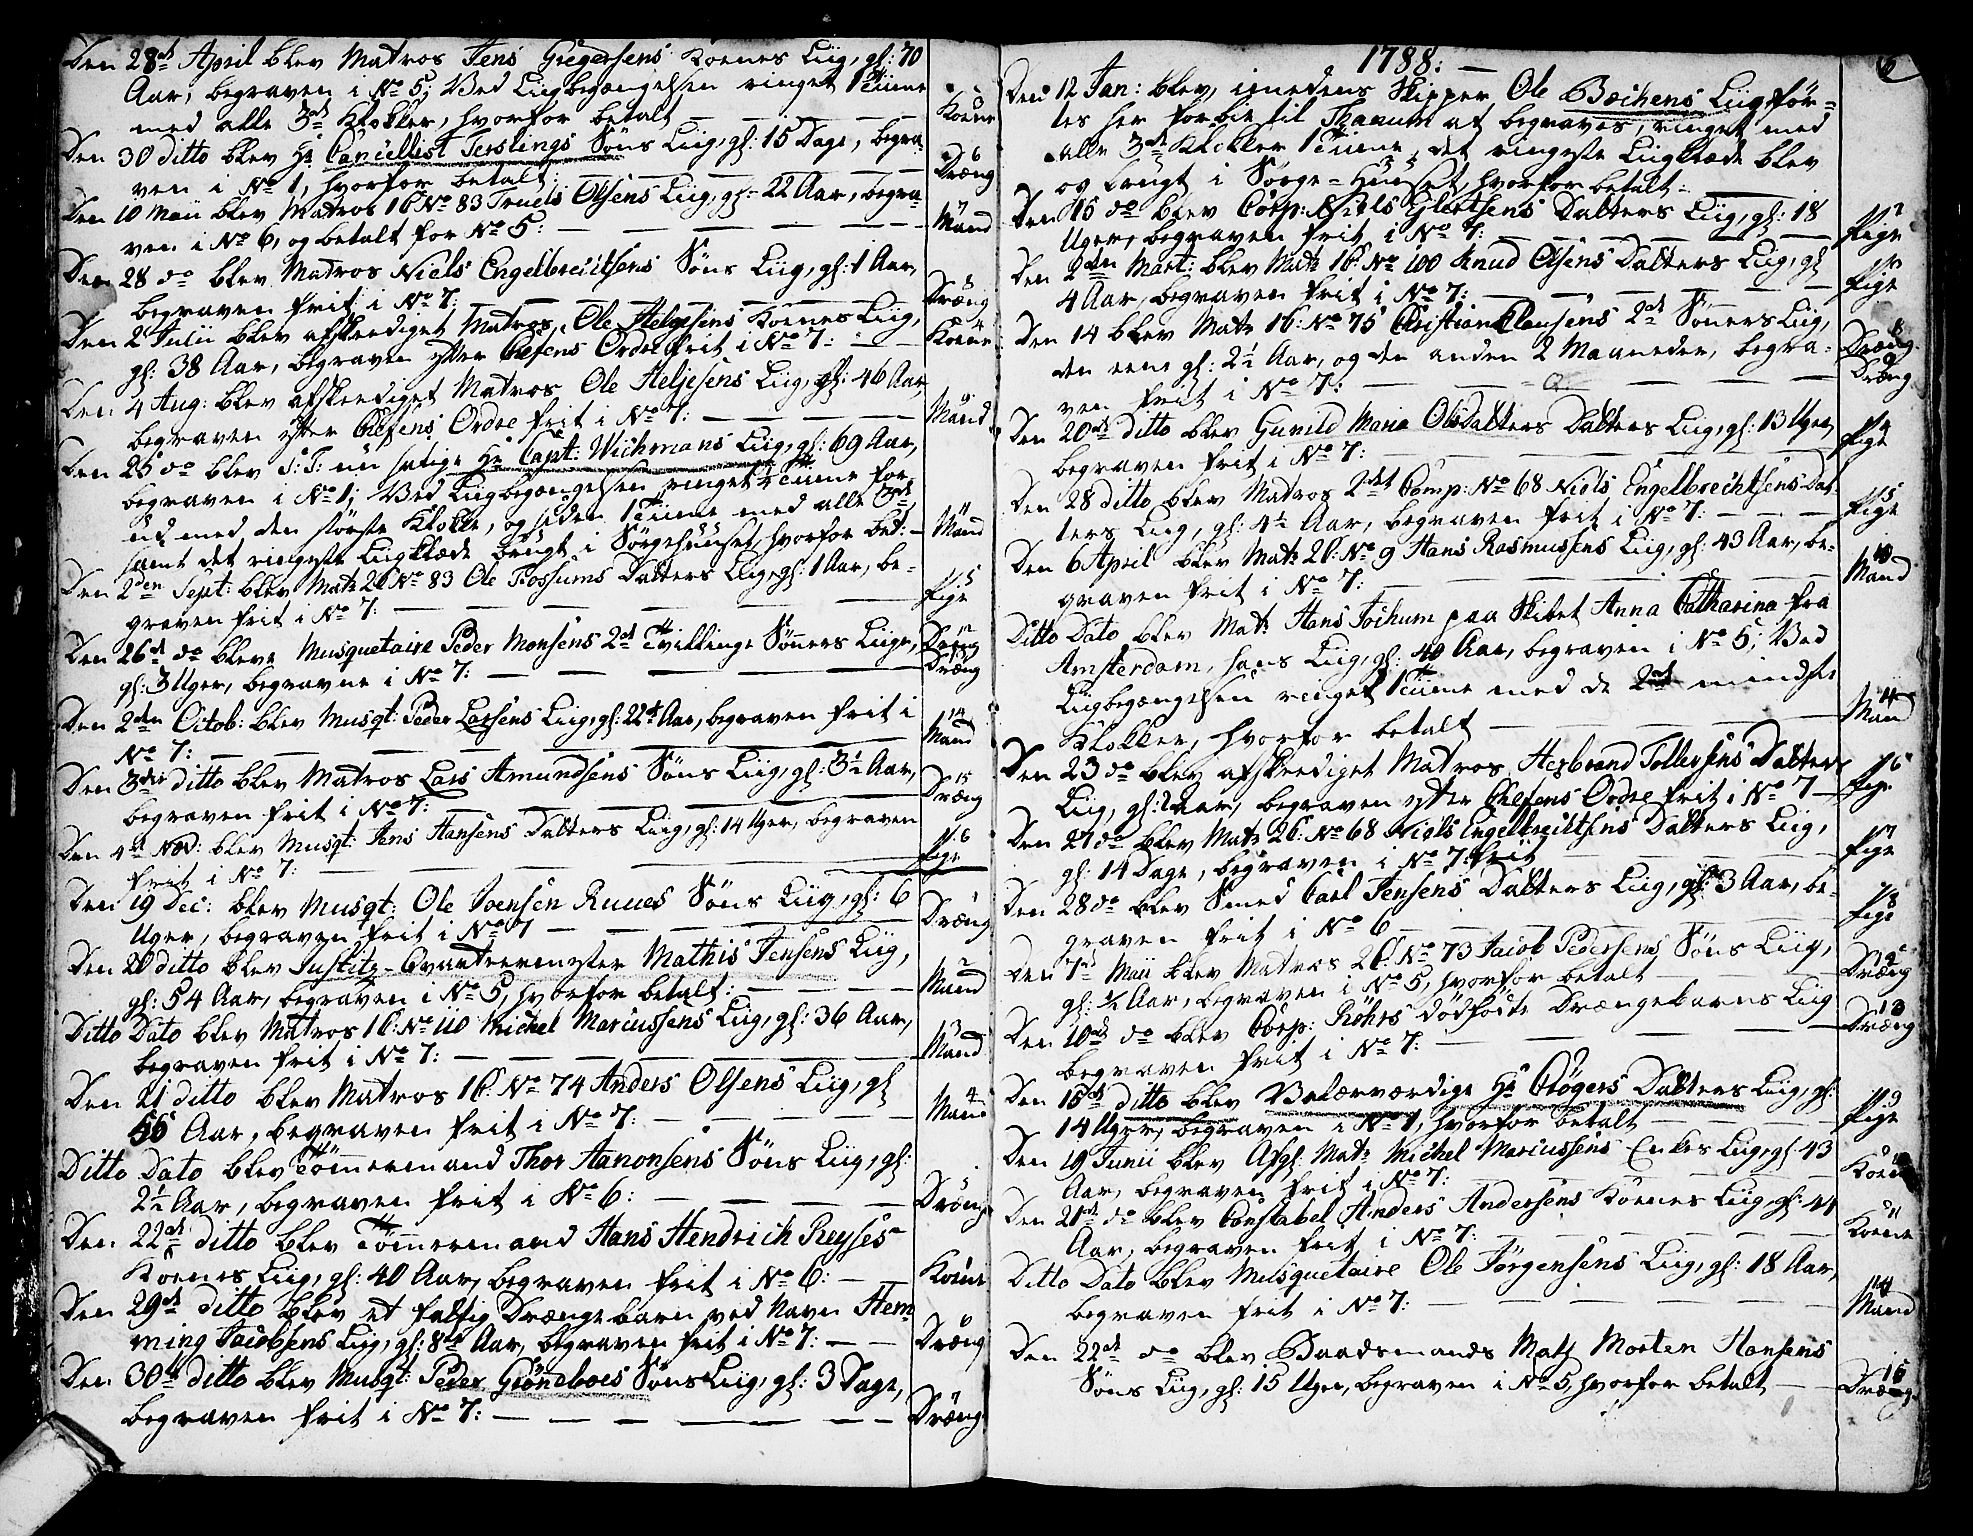 Den 28de April blev Matros Jens Gregersens Koenes Liig, gl: 70
Aar, begraven i No 5; Ved Liigbegængelsen ringet 1 Time
med alle 3de Klokker, hvorfor betalt — — —
Koene
Den 30 ditto blev Hr Cancellist Terslings Søns Liig, gl: 15 Dage, begra-
ven i No 1, hvorfor betalt: — — —
6
Dræng
Den 10 Maii blev Matros 1C No 83 Truels Olsens Liig, gl: 22 Aar, begra-
ven i No 6, og betalt for No 5: — — —
Mand
Den 28 do blev Matros Niels Engelbrechtsens Søns Liig, gl: 1 Aar,
begraven frit i No 7: — — —
8
Dræng
Den 2 Julii blev afskeediget Matros Ole Heljesens Koenes Liig,
gl: 38 Aar, begraven efter Chefens Ordre frit i No 7: — —
Koene
Den 4 Aug: blev afskeediget Matros Ole Heljesens Liig, gl: 46 Aar,
begraven efter Chefens Ordre frit i No 7: — — —
Mand
Den 25 do blev S: T: nu salige Hr Capt: Wichmans Liig, gl: 69 Aar,
begraven i No 1; Ved Liigbegængelsen ringet 1/2 Time for
ud med den største Klokke, og siden 1 Time med alle 3de,
samt det ringeste Liigklæde brugt i Sørgehuuset, hvorfor bet: —
Mand
Den 2den Sept: blev Mat: 2C No 83 Ole Rossums Datters Liig, gl: 1 Aar, be-
graven frit i No 7: — — —
5
Pige
Den 26de do bleve Musquetaire Peder Monsens 2de Tvillinge Sønners Liige,
gl: 3 Uger, begravne i No 7: — — —
Dræng
Dræng
Den 2den Octob: blev Musqt: Peder Larsens Liig, gl: 22 Aar, begraven frit i
No 7: — — —
14
Mand
Den 3die ditto blev Matros Lars Amundsens Søns Liig, gl: 3½ Aar,
begraven frit i No 7: — — —
15
Dræng
Den 4de Nov: blev Musqt: Jens Hansens Datters Liig, gl: 14 Uger, begraven
frit i No 7: — — —
6
Pige
Den 19 Dec: blev Musqt: Ole Joensen Ruues Søns Liig, gl: 6
Uger, begraven frit i No 7 — — —
1
Dræng
Den 20 ditto blev Justitz-Qvarteermester Mathis Jensens Liig,
gl: 54 Aar, begraven i No 5, hvorfor betalt: — — —
2
Mand
Ditto Dato blev Matros 1C: No 110 Michel Marcussens Liig, gl: 36 Aar,
begraven frit i No 7: — — —
3
Mand
Den 21 ditto blev Matros 1C: No 74 Anders Olsens Liig, gl
56 Aar, begraven frit i No 7: — — —
4
Mand
Ditto Dato blev Tømmermand Thor Aanonsens Søns Liig, gl:
2½ Aar, begraven frit i No 6: — — —
5
Dræng
Den 22de ditto blev Tømmermand Hans Hendrich Reyses
Koenes Liig, gl: 40 Aar, begraven frit i No 6: — —
Koene
Den 29de ditto blev et fattig Drængebarn ved Navn Hem-
ming Jacobsens Liig, gl: 8te Aar, begraven frit i No 7: — —
6
Dræng
Den 30te ditto blev Musqt: Peder Grøndboes Søns Liig, gl: 3 Dage,
begraven frit i No 7: — — —
Dræng
1788: —
6
Den 12 Jan: blev, imedens Skipper Ole Bæckens Liig, før-
tes her forbie til Thanum at begraves, ringet med
alle 3de Klokker 1 Time, det ringeste Liigklæde blev
og brugt i Sørge-Huuset, hvorfor betalt —
Den 15 do blev Corp: Niels Glertsens Datters Liig, gl: 18
Uger, begraven frit i No 7: — — —
2
Pige
Den 2den Mart: blev Mat: 1C: No 100 Knud Olsens Datters Liig, gl
4 Aar, begraven frit i No 7: — — —
Pige
Den 14 blev Mat: 1C: No 75 Christian Clausens 2de Sønners Liig,
den eene gl: 2½ Aar, og den anden 2 Maaneder, begra-
ven frit i No 7: — — —
8
Dræng
9
Dræng
Den 20de ditto blev Gunild Maria Olsdatters Datters Liig, gl: 13 Uger,
begraven frit i No 7: — — —
4
Pige
Den 28 ditto blev Matros 2det Comp: No 68 Niels Engelbrechtsens Dat-
ters Liig, gl: 4½ Aar, begraven frit i No 7: — — —
5
Pige
Den 6 April blev Mat: 2C: No 9 Hans Rasmussens Liig, gl: 43 Aar, be-
graven frit i No 7: — — —
10
Mand
Ditto Dato blev Mat: Hans Jochum paa Skibet Anna Catharina fra
Amsterdam, hans Liig, gl: 40 Aar, begraven i No 5; Ved
Liigbegængelsen ringet 1 Time med de 2de mindste
Klokker, hvorfor betalt — — —
11
Mand
Den 23 do blev afskeediget Matros Herbrand Tollersens Datters
Liig, gl: 2 Aar, begraven efter Chefens Ordre frit i No 7 —
6
Pige
Den 27 do blev Mat: 2C: No 68 Niels Engelbrechtsens Datters Liig,
gl: 14 Dage, begraven i No 7 frit — — —
7
Pige
Den 28 do blev Smed Carl Jensens Datters Liig, gl: 3 Aar, be-
graven frit i No 6 — — —
8
Pige
Den 7de Maii blev Matros 2C: No 73 Jacob Pedersens Søns Liig,
gl: ¾ Aar, begraven i No 5, hvorfor betalt — — —
12
Dræng
Den 10de do blev Corp: Röhrs dödfödte Drængebarns Liig
begraven frit i No 7: — — —
13
Dræng
Den 15de ditto blev Velærværdige Hr Crøgers Datters Liig, gl:
14 Uger, begraven i No 1, hvorfor betalt — — —
9
Pige
Den 19 Junii blev Afgl: Mat: Michel Marcussens Enkes Liig, gl: 43
Aar, begraven frit i No 7: — — —
Koene
Den 21de do blev Constabel Anders Andersens Koenes Liig, gl: 44
Aar, begraven frit i No 7: — — —
11
Koene
Ditto Dato blev Musquetaire Ole Jørgensens Liig, gl: 18 Aar,
begraven frit i No 7: — — —
14
Mand
Den 22de do blev Baadsmands Mat: Morten Hansens
Søns Liig, gl: 15 Uger, begraven i No 5, hvorfor betalt —
15
Dræng